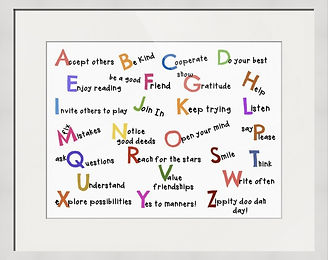 Accept others Be Kind Cooperate Do your best
Enjoy reading be a good Friend show Gratitude Help
Invite others to play Join In Keep trying Listen
fix Mistakes Notice good deeds Open your mind say Please
ask Questions Reach for the stars Smile Think
Understand Value friendships Write often
eXplore possibilities Yes to manners! Zippity doo dah day!